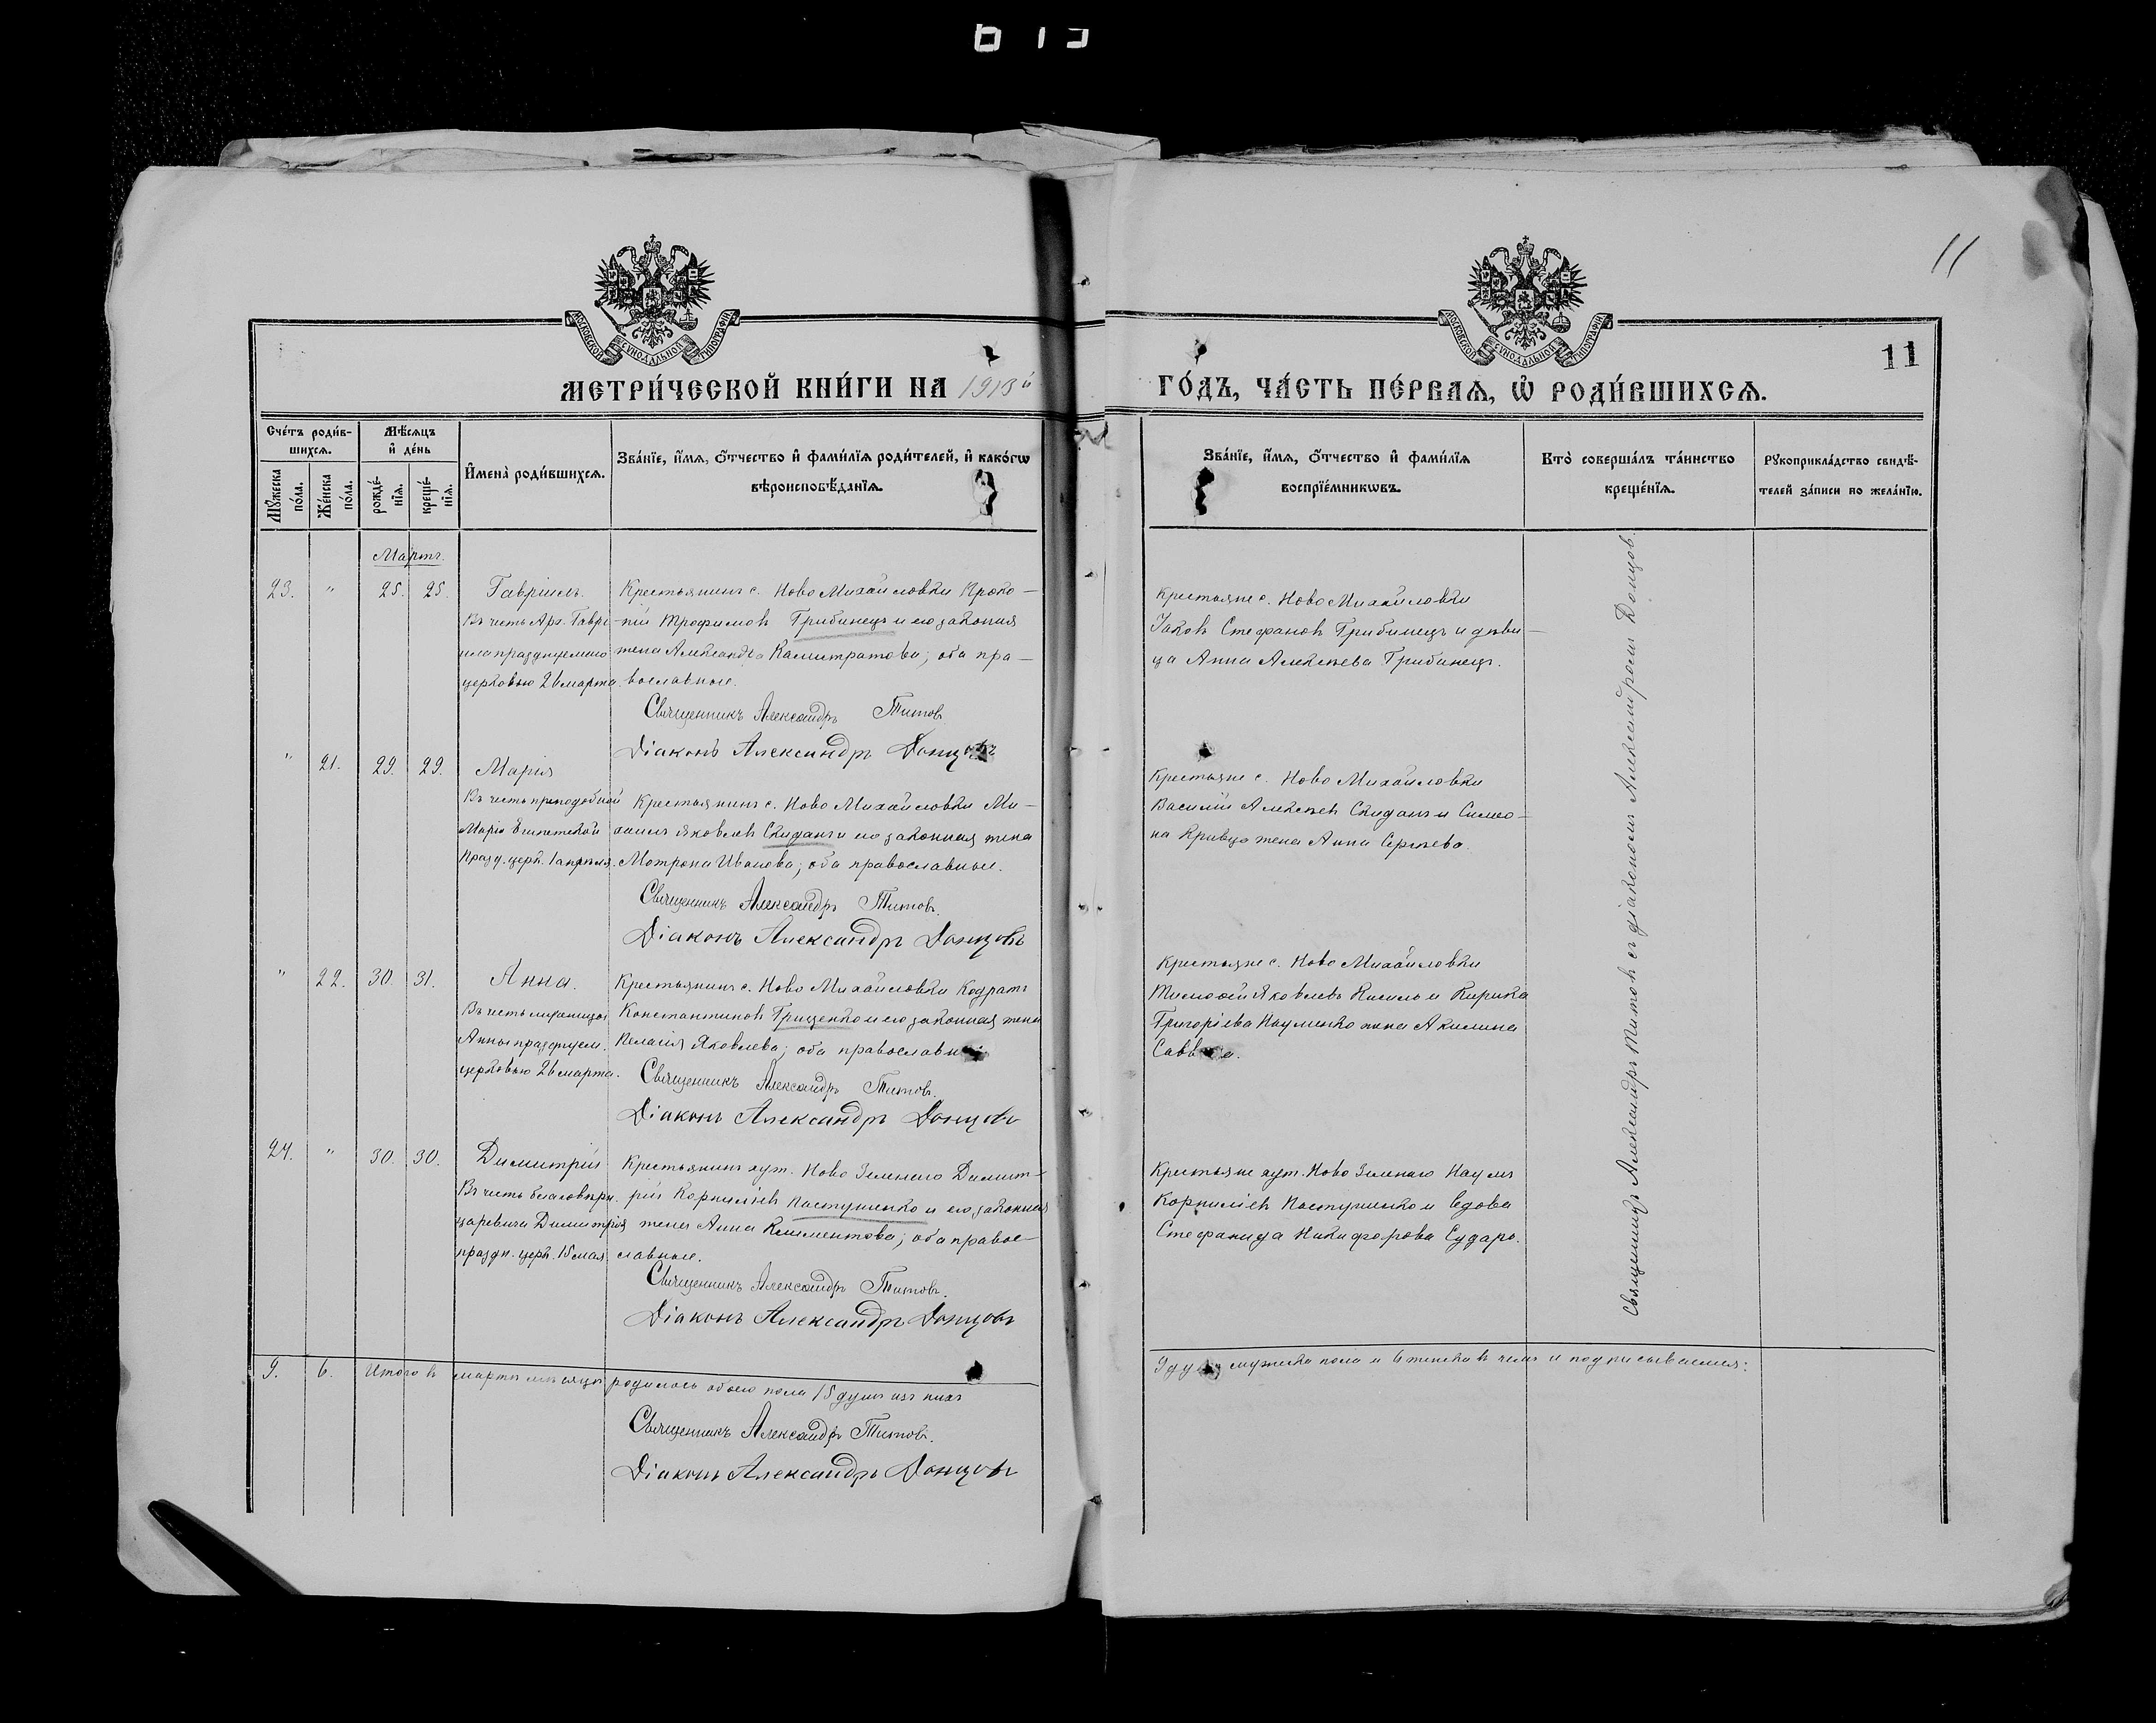 11
МОСКОВСКОЙ СѴНОДАЛЬНОЙ ТИПОГРАФІИ
МОСКОВСКОЙ СѴНОДАЛЬНОЙ ТИПОГРАФІИ
11
МЕТРИ́ЧЕСКОЙ КНИ́ГИ НА 1913й
ГО́ДЪ, ЧА́СТЬ ПЕ́РВАѦ, Ѡ҆ РОДИ́ВШИХСѦ.
Сче́тъ роди́в-
шихсѧ.
Мꙋ́жеска по́ла.
Же́нска по́ла.
Мѣ́сѧцъ
и҆ де́нь
рожде́-
нїѧ.
креще́-
нїѧ.
И҆мена̀ роди́вшихсѧ.
Зва́нїе, и҆́мѧ, ѻ҆́тчество и҆ фами́лїѧ роди́телей, и҆ како́гѡ
вѣроисповѣ́данїѧ.
Зва́нїе, и҆́мѧ, ѻ҆́тчество и҆ фами́лїѧ
воспрїе́мникѡвъ.
Кто̀ соверша́лъ та́инство
креще́нїѧ.
Рꙋкоприкла́дство свидѣ́-
телей за́писи по жела́нїю.
Мартъ.
23. " 25. 25. Гавріилъ.
Въ честь Арх. Гаврі-
ила празднуемаго
церковью 26 марта.
Крестьянинъ с. Ново Михайловки Проко-
пій Трофимовъ Грибинецъ и его законная
жена Александра Калистратова; оба пра-
вославные.
Священникъ Александръ Титовъ
Діаконъ Александръ Донцовъ
Крестьяне с. Ново Михайловки
Іаковъ Стефановъ Грибинецъ и дѣви-
ца Анна Алексѣева Грибинецъ.
" 21. 29. 29. Марія
Въ честь преподобной
Маріи Египетской
празд. церк. 1 апрѣля.
Крестьянинъ с. Ново Михайловки Ми-
хаилъ Яковлевъ Скиданъ и его законная жена
Матрона Иванова; оба православные.
Священникъ Александръ Титовъ.
Діаконъ Александръ Донцовъ
Крестьяне с. Ново Михайловки
Василій Алексѣевъ Скиданъ и Симео-
на Кривца жена Анна Сергѣева.
" 22. 30. 31. Анна.
Въ честь мученицы
Анны празднуем.
церковью 26 марта.
Крестьянинъ с. Ново Михайловки Кодратъ
Константиновъ Грищенко и его законная жена
Пелагія Яковлева; оба православные.
Священникъ Александръ Титовъ.
Діаконъ Александръ Донцовъ
Крестьяне с. Ново Михайловки
Тимофей Яковлевъ и Кирика
Григоріева Науменко жена Акилина
24. " 30. 30. Димитрій
Въ честь благовѣрн.
царевича Димитрія
праздн. церк. 15 мая.
Крестьянинъ хут. Ново Зеленаго Димит-
рій Корниліевъ Пастушенко и его законная
жена Анна Климентова; оба право-
славные.
Священникъ Александръ Титовъ.
Діаконъ Александръ Донцовъ
Крестьяне хут. Ново Зеленаго Наумъ
Корниліевъ Пастушенко и вдова
Стефанида Никифорова Сударо.
Священникъ Александръ Титовъ съ діакономъ Александромъ Донцовъ.
9. 6. Итого въ мартѣ мѣсяцѣ родилось обоего пола 15 душъ изъ нихъ
9 душ мужеска пола и 6 женска въ чемъ и подписываемся:
Священникъ Александръ Титовъ.
Діаконъ Александръ Донцовъ